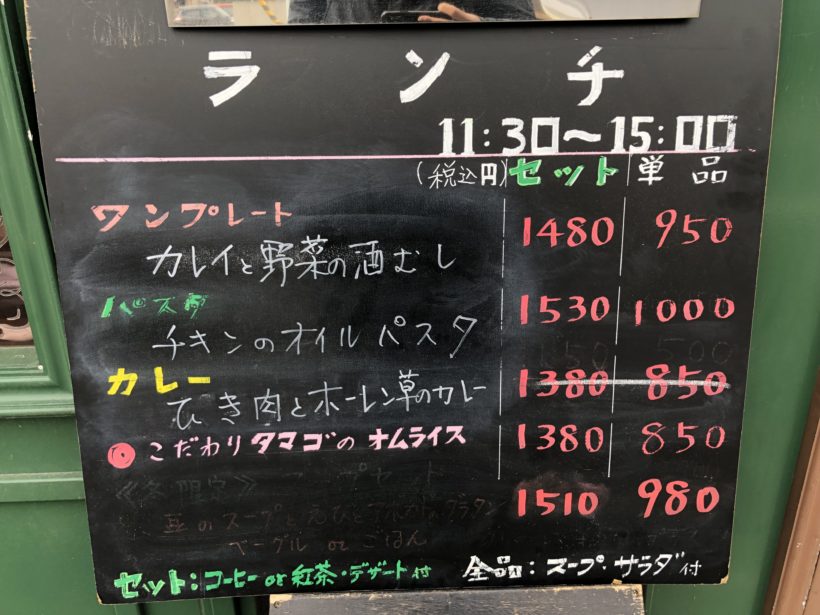 ランチ
11:30～15:00
(税込円) セット 単品
ワンプレート
カレイと野菜の酒むし 1480 950
パスタ
チキンのオイルパスタ 1530 1000
カレー
ひき肉とホーレン草のカレー 1380 850
こだわりタマゴのオムライス 1380 850
《冬限定》 1510 980
豆のスープとえびと グラタン
ベーグル or ごはん
セット:コーヒーor紅茶・デザート付 全品:スープ・サラダ付